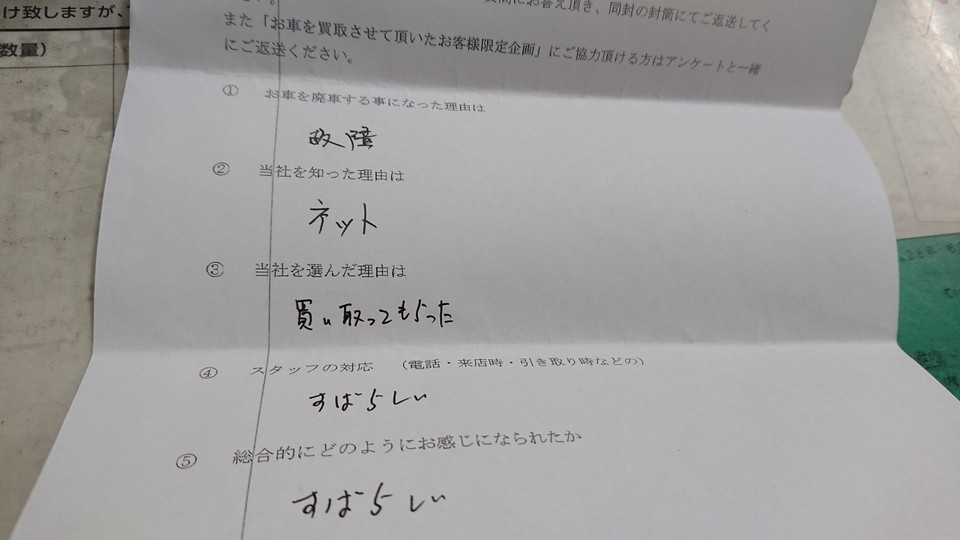 け致しますが、
数量）
にお答え頂き、同封の封筒にてご返送してく
また「お車を買取させて頂いたお客様限定企画」にご協力頂ける方はアンケートと一緒
にご返送ください。
① お車を廃車する事になった理由は
故障
② 当社を知った理由は
ネット
③ 当社を選んだ理由は
買い取ってもらった
④ スタッフの対応 （電話・来店時・引き取り時などの）
すばらしい
⑤ 総合的にどのようにお感じになられたか
すばらしい